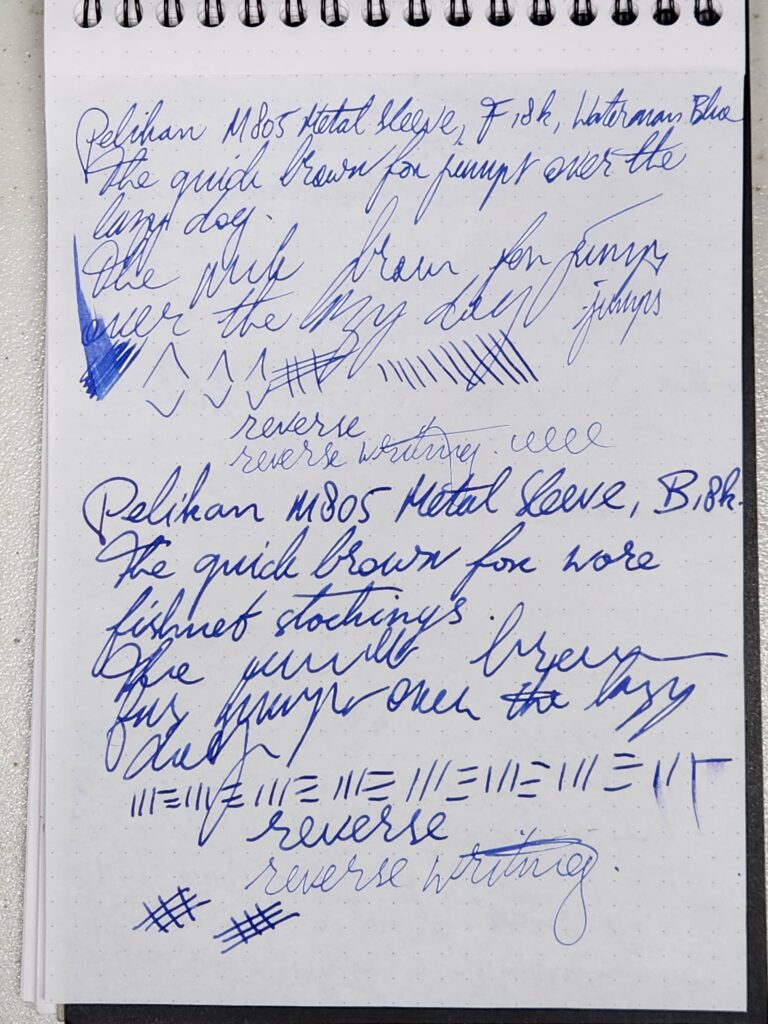 Pelikan M805 Metal Sleeve, F, 18k, Waterman Blue
The quick brown fox jumps over the
lazy dog.
The quick brown fox jumps
over the lazy dog jumps
reverse
reverse writing. eeee
Pelikan M805 Metal Sleeve, B, 18k.
The quick brown fox wore
fishnet stockings.
The quick brown
fox jumps over the lazy
dog
reverse
reverse writing.